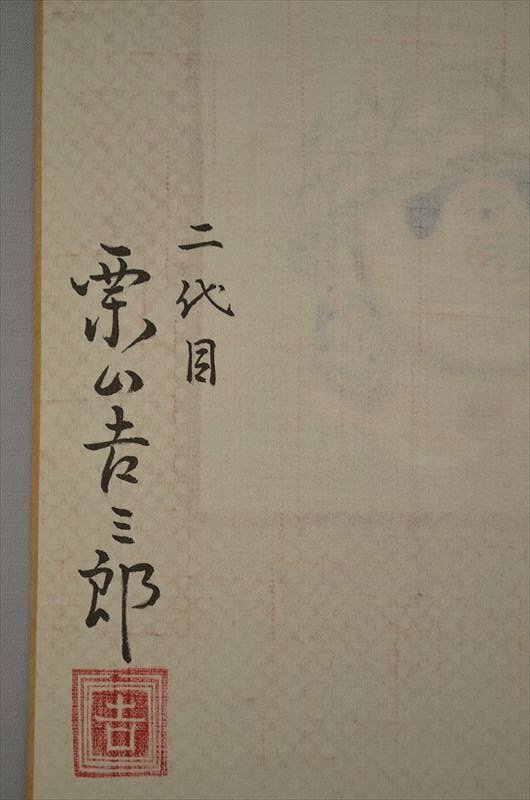 二代目
栗山吉三郎
吉